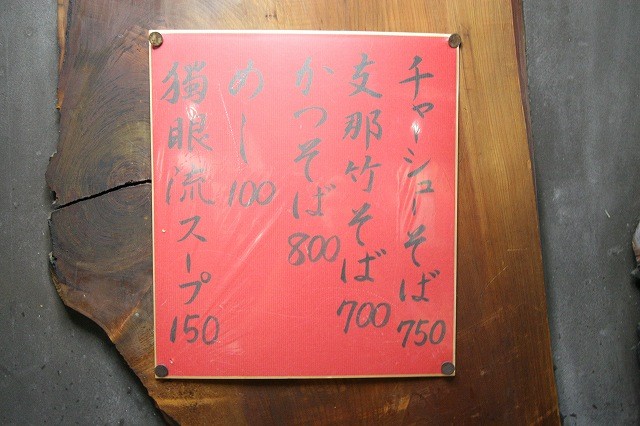 チャーシューそば 750
支那竹そば 700
かつそば 800
めし 100
猫眼流スープ 150